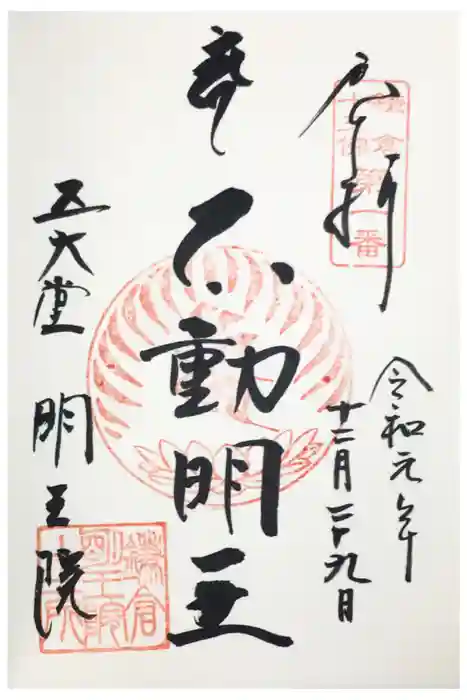 奉拝
鎌倉
第一番
令和元年
十二月二十九日
不動明王
五大堂 明王院
鎌倉